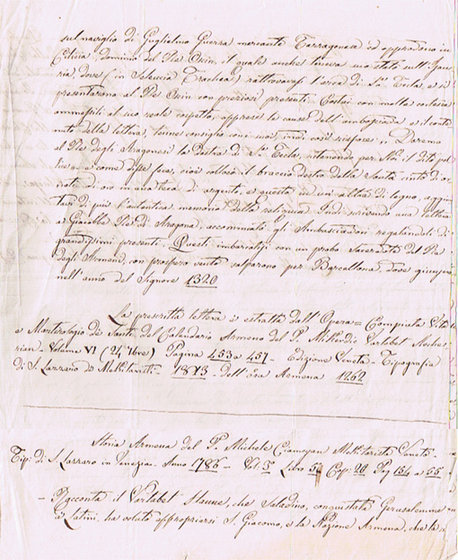 sul naviglio di Guglielmo Guerra mercante Tarragonese ed approdano in
Cilicia dominio del Re Osim, il quale anche teneva suo stato sull'Isau-
ria, dove (in Seleucia Trachea) rattrovavasi l'arca di Sta Tecla, e si
presentarono al Re Osin con preziosi presenti. Costui con molta cortesia
ammessili al suo reale cospetto, apprese la causa dell'ambasciata e il conte-
nuto della lettera, tenne consiglio coi suoi, indi così rispose: Daremo
al Re degli Aragonesi la destra di Sta Tecla, ritenendo per Noi il
come disse fece, cioè collocò il braccio destro della Santa cinto di or-
nati di oro in una teca di argento, e questa in un'altra di legno, aggiun-
tavi di più l'autentica memoria della reliquia. Indi scrivendo una lettera
a Giacobbe Re di Aragona, accomiatò gli Ambasciadori regalandoli di
grandissimi presenti. Questi imbarcatisi con un probo Sacerdote del Re
degli Armeni, con prospero vento salparono per Barcellona dove giunsero
nell'anno del Signore 1320
La prescritta lettera è estratta dall'Opera = Compiuta Vita
e Martirologio dei Santi del Calendario Armeno del P.
Volume VI (24 7bre) Pagina 453 a 457 - Edizione Veneta - Tipografia
di S. Lazzaro de Mekitaristi - 1813 - dell'Era Armena 1262
Storia Armena del P. Michele Ciamcyan Mekitarista Veneto
Tip. di S. Lazzaro in Venezia - Anno 1786 - Vol 3° Libro 5° Cap. 20 Pag 154 a 55
- Racconta il Vertebet che Saladino, conquistata Gerusalemme
i Latini, ha voluto appropriarsi S. Giacomo, e la Nazione Armena, che